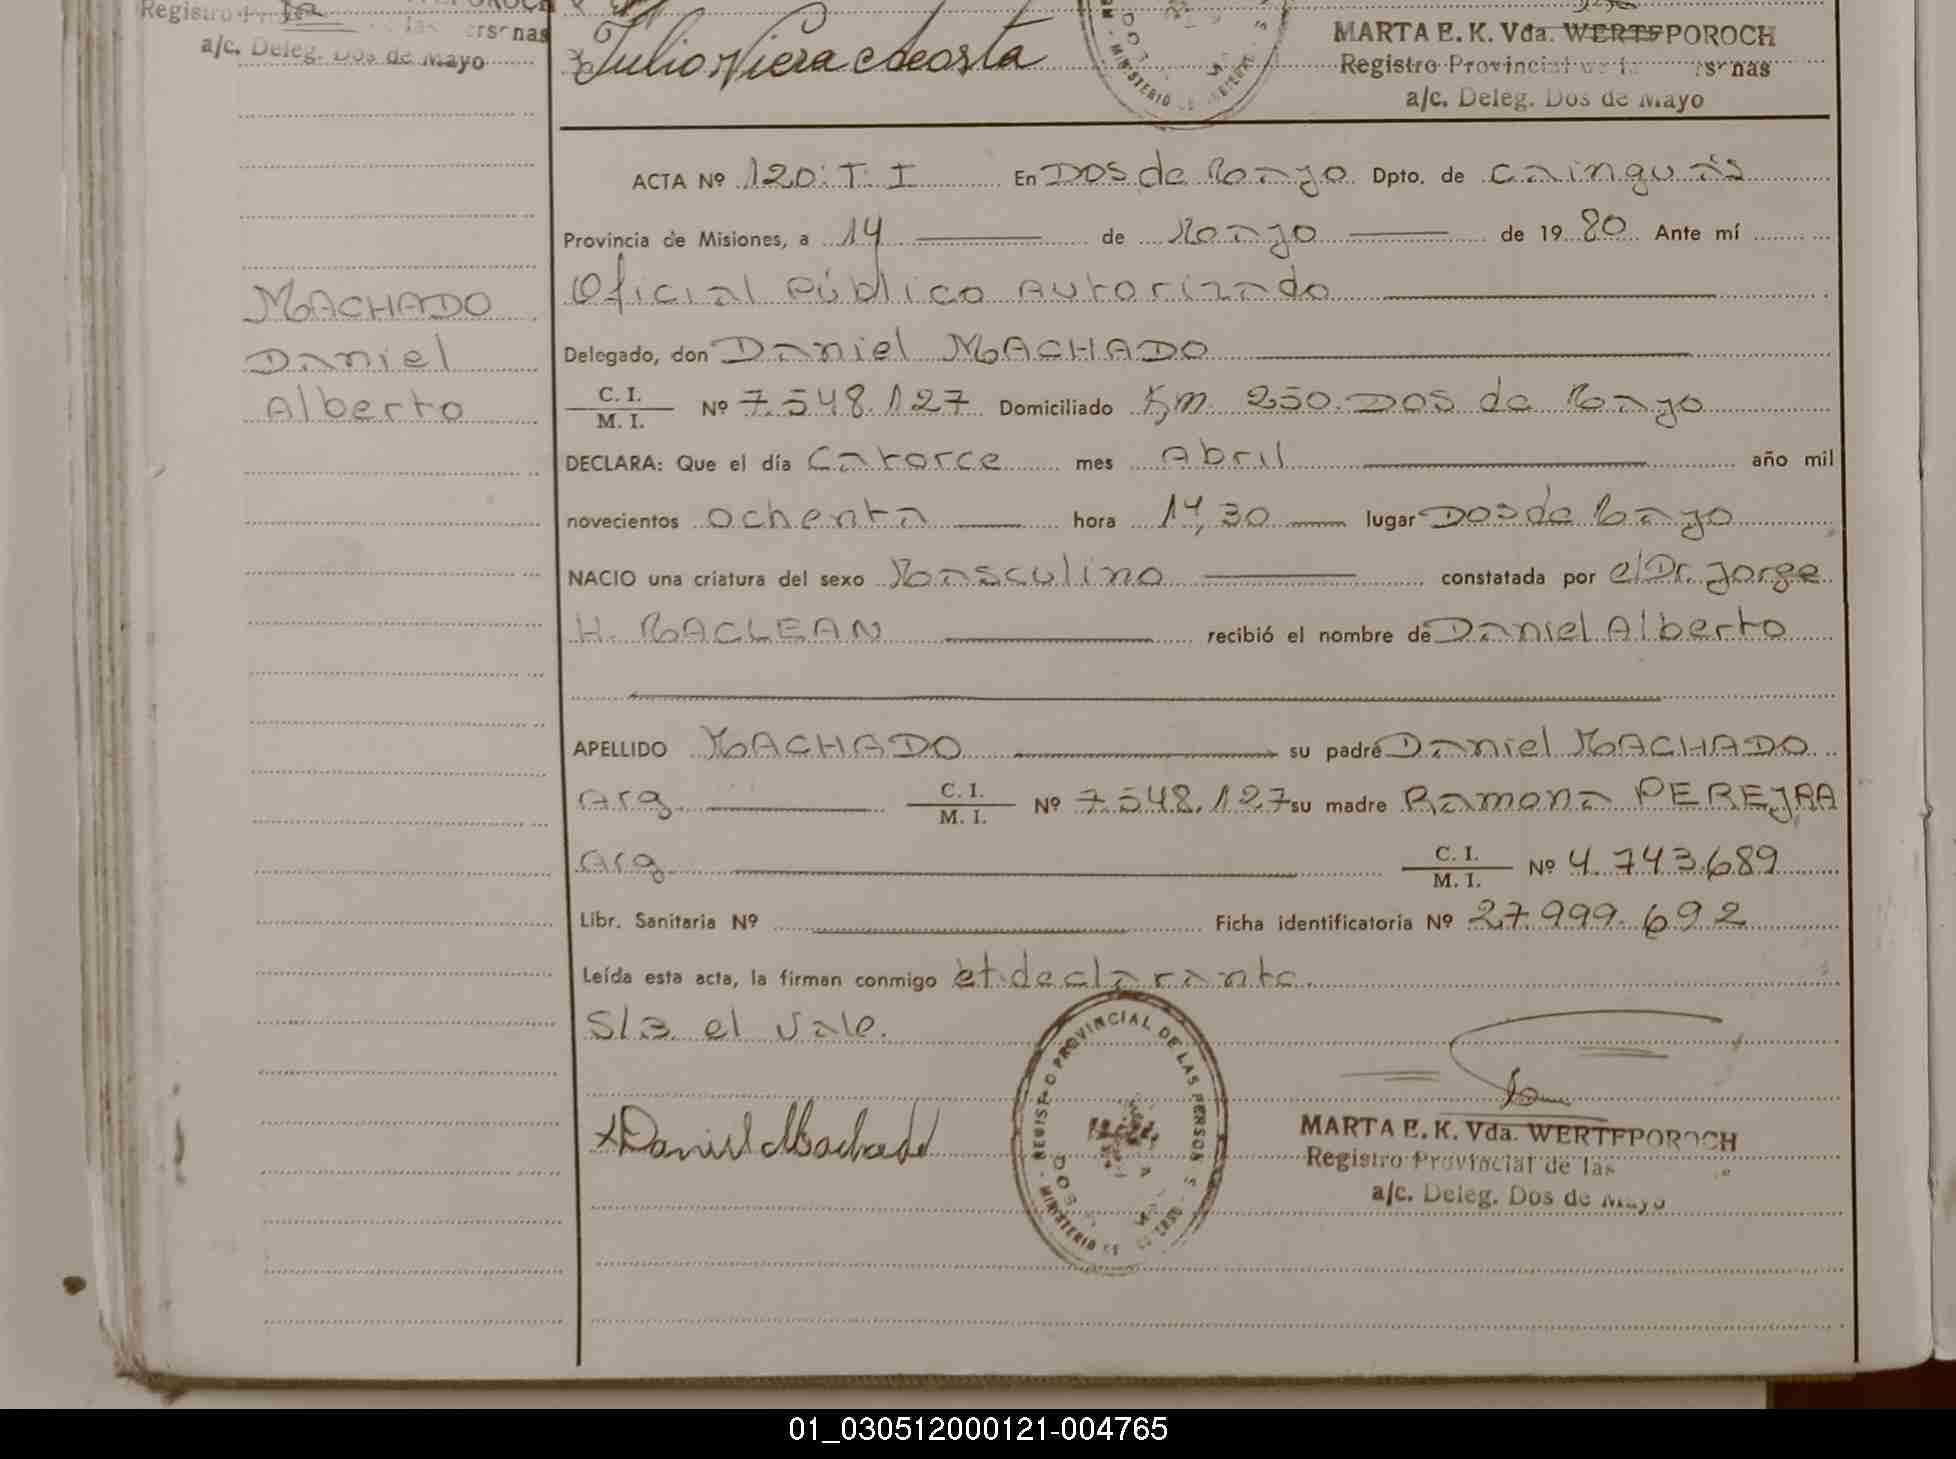 Registro
a/c. Deleg. Dos de Mayo
Julio Viera
MARTA E. K. Vda. WERTFPOROCH
Registro Provincial
a/c. Deleg. Dos de Mayo
ACTA Nº 120. T. I En Dos de Mayo Dpto. de Cainguás
Provincia de Misiones, a 14 de Mayo de 1980 Ante mí
Oficial Público Autorizado
Delegado, don Daniel MACHADO
C. I.
M. I. Nº 7.548.127 Domiciliado Km 250. Dos de Mayo
DECLARA: Que el día Catorce mes Abril año mil
novecientos ochenta hora 14,30 lugar Dos de Mayo
NACIO una criatura del sexo Masculino constatada por el Dr. Jorge
H. MACLEAN recibió el nombre de Daniel Alberto
APELLIDO MACHADO su padre Daniel MACHADO
Arg. C. I.
M. I. Nº 7.548.127 su madre Ramona PEREJRA
Arg. C. I.
M. I. Nº 4.743.689
Libr. Sanitaria Nº Ficha identificatoria Nº 27.999.692
Leída esta acta, la firman conmigo el declarante.
S/B. el Vale.
MACHADO
Daniel
Alberto
x Daniel Machado
REGISTRO PROVINCIAL DE LAS PERSONAS
MINISTERIO DE GOBIERNO
MARTA E. K. Vda. WERTFPOROCH
Registro Provincial de las
a/c. Deleg. Dos de Mayo
01_030512000121-004765